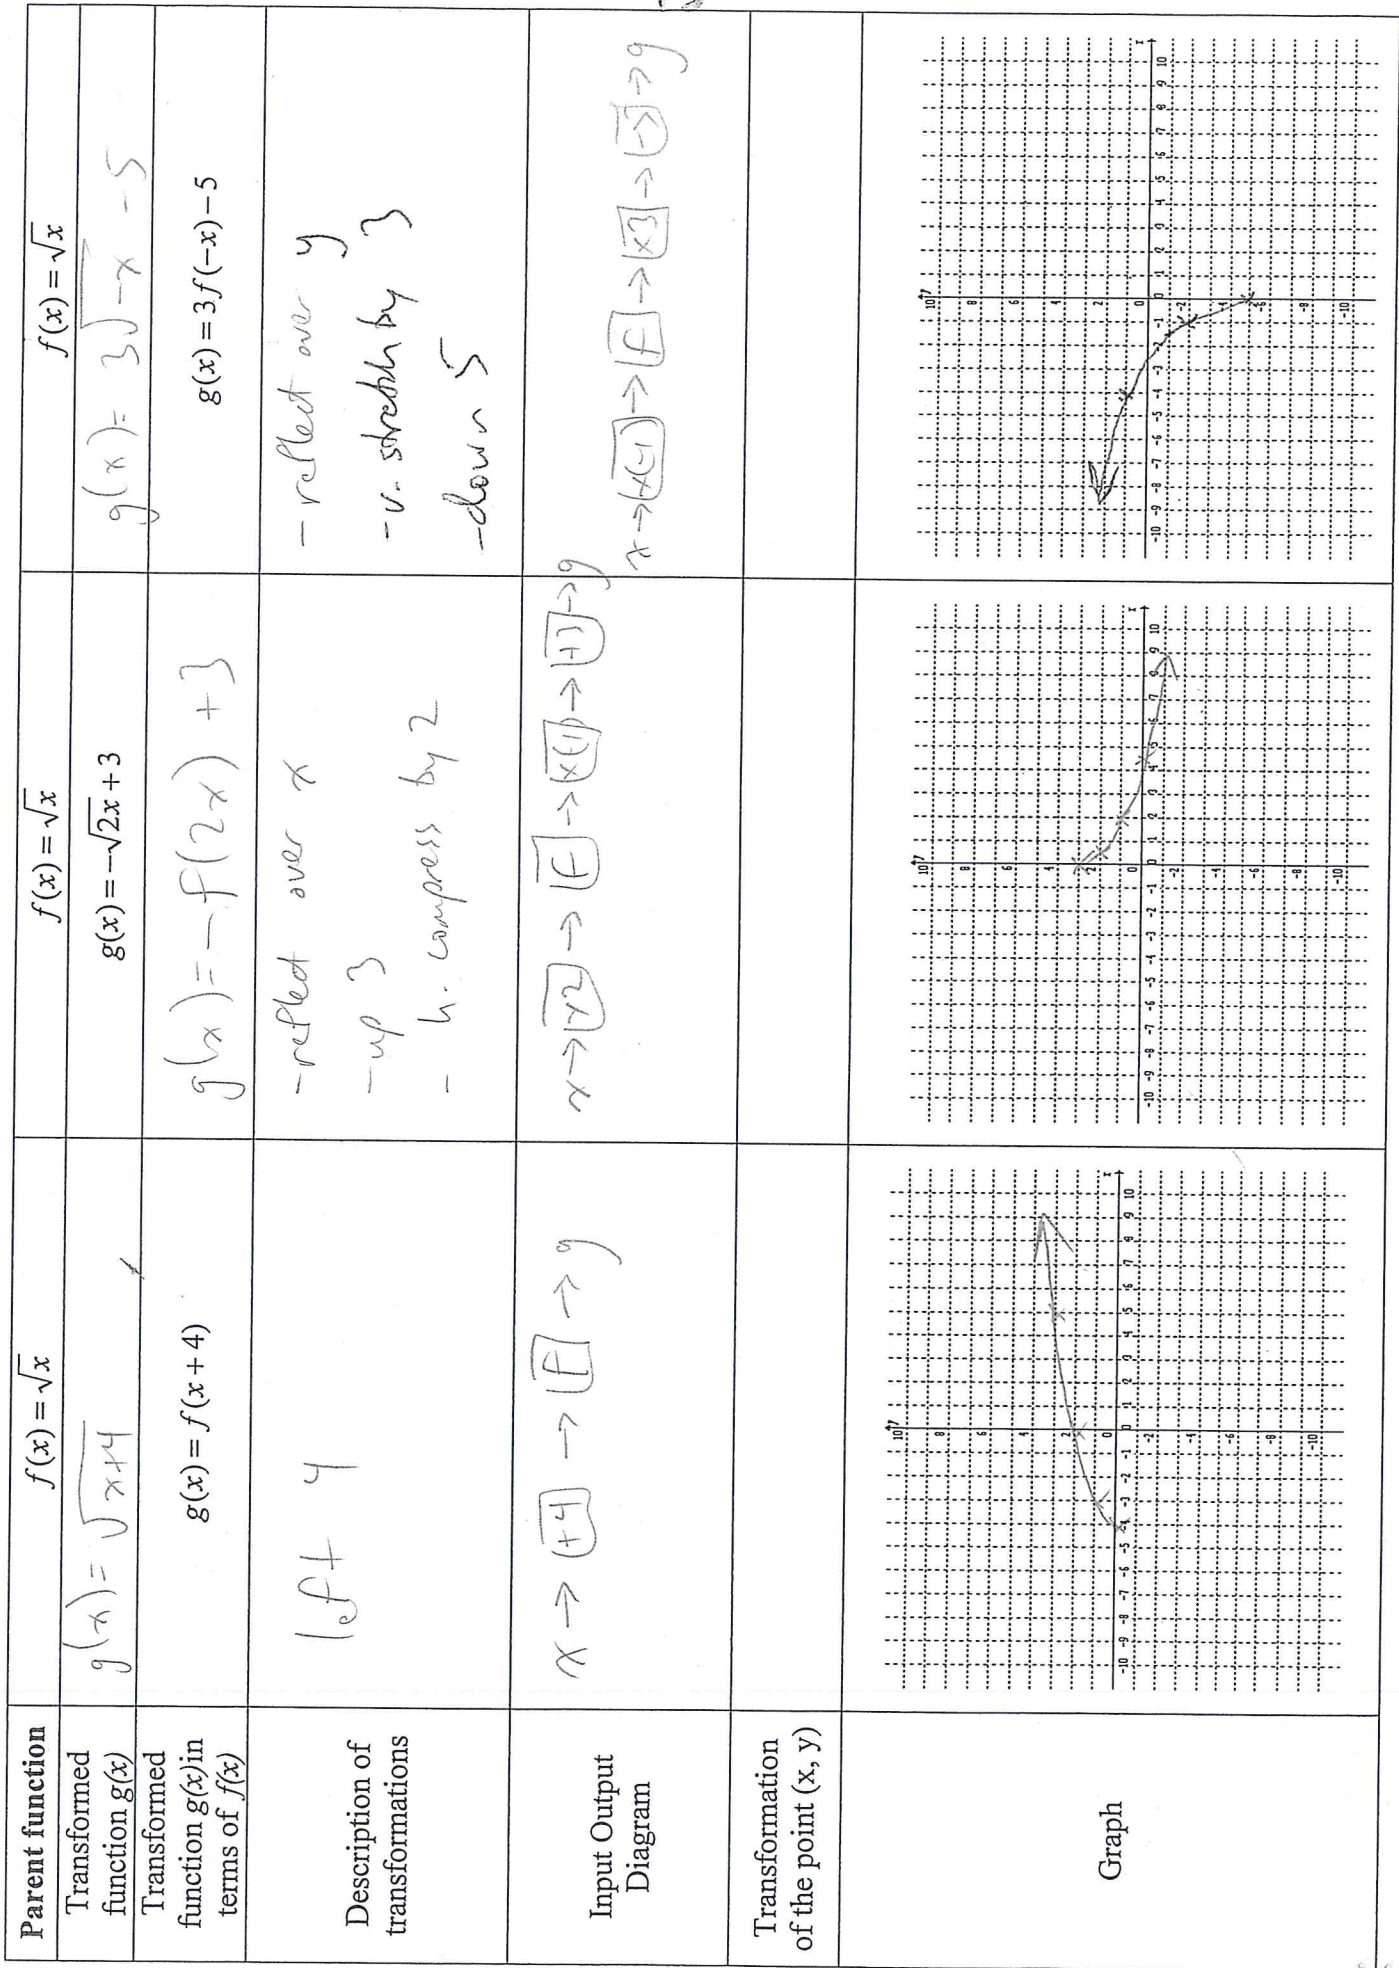 Parent function
f(x) = √x
f(x) = √x
f(x) = √x
Transformed
function g(x)
g(x) = √x+4
g(x) = −√2x + 3
g(x) = 3√−x − 5
Transformed
function g(x)in
terms of f(x)
g(x) = f(x + 4)
g(x) = −f(2x) + 3
g(x) = 3f(−x) − 5
Description of
transformations
left 4
- reflect over x
- up 3
- h. compress by 2
- reflect over y
- v. stretch by 3
- down 5
Input Output
Diagram
x → +4 → f → g
x → x2 → f → x(-1) → +3 → g
x → x(-1) → f → x3 → -5 → g
Transformation
of the point (x, y)
Graph
y
10
8
6
4
2
0
-2
-4
-6
-8
-10
-10 -9 -8 -7 -6 -5 -4 -3 -2 -1 0 1 2 3 4 5 6 7 8 9 10
x
y
10
8
6
4
2
0
-2
-4
-6
-8
-10
-10 -9 -8 -7 -6 -5 -4 -3 -2 -1 0 1 2 3 4 5 6 7 8 9 10
x
y
10
8
6
4
2
0
-2
-4
-6
-8
-10
-10 -9 -8 -7 -6 -5 -4 -3 -2 -1 0 1 2 3 4 5 6 7 8 9 10
x